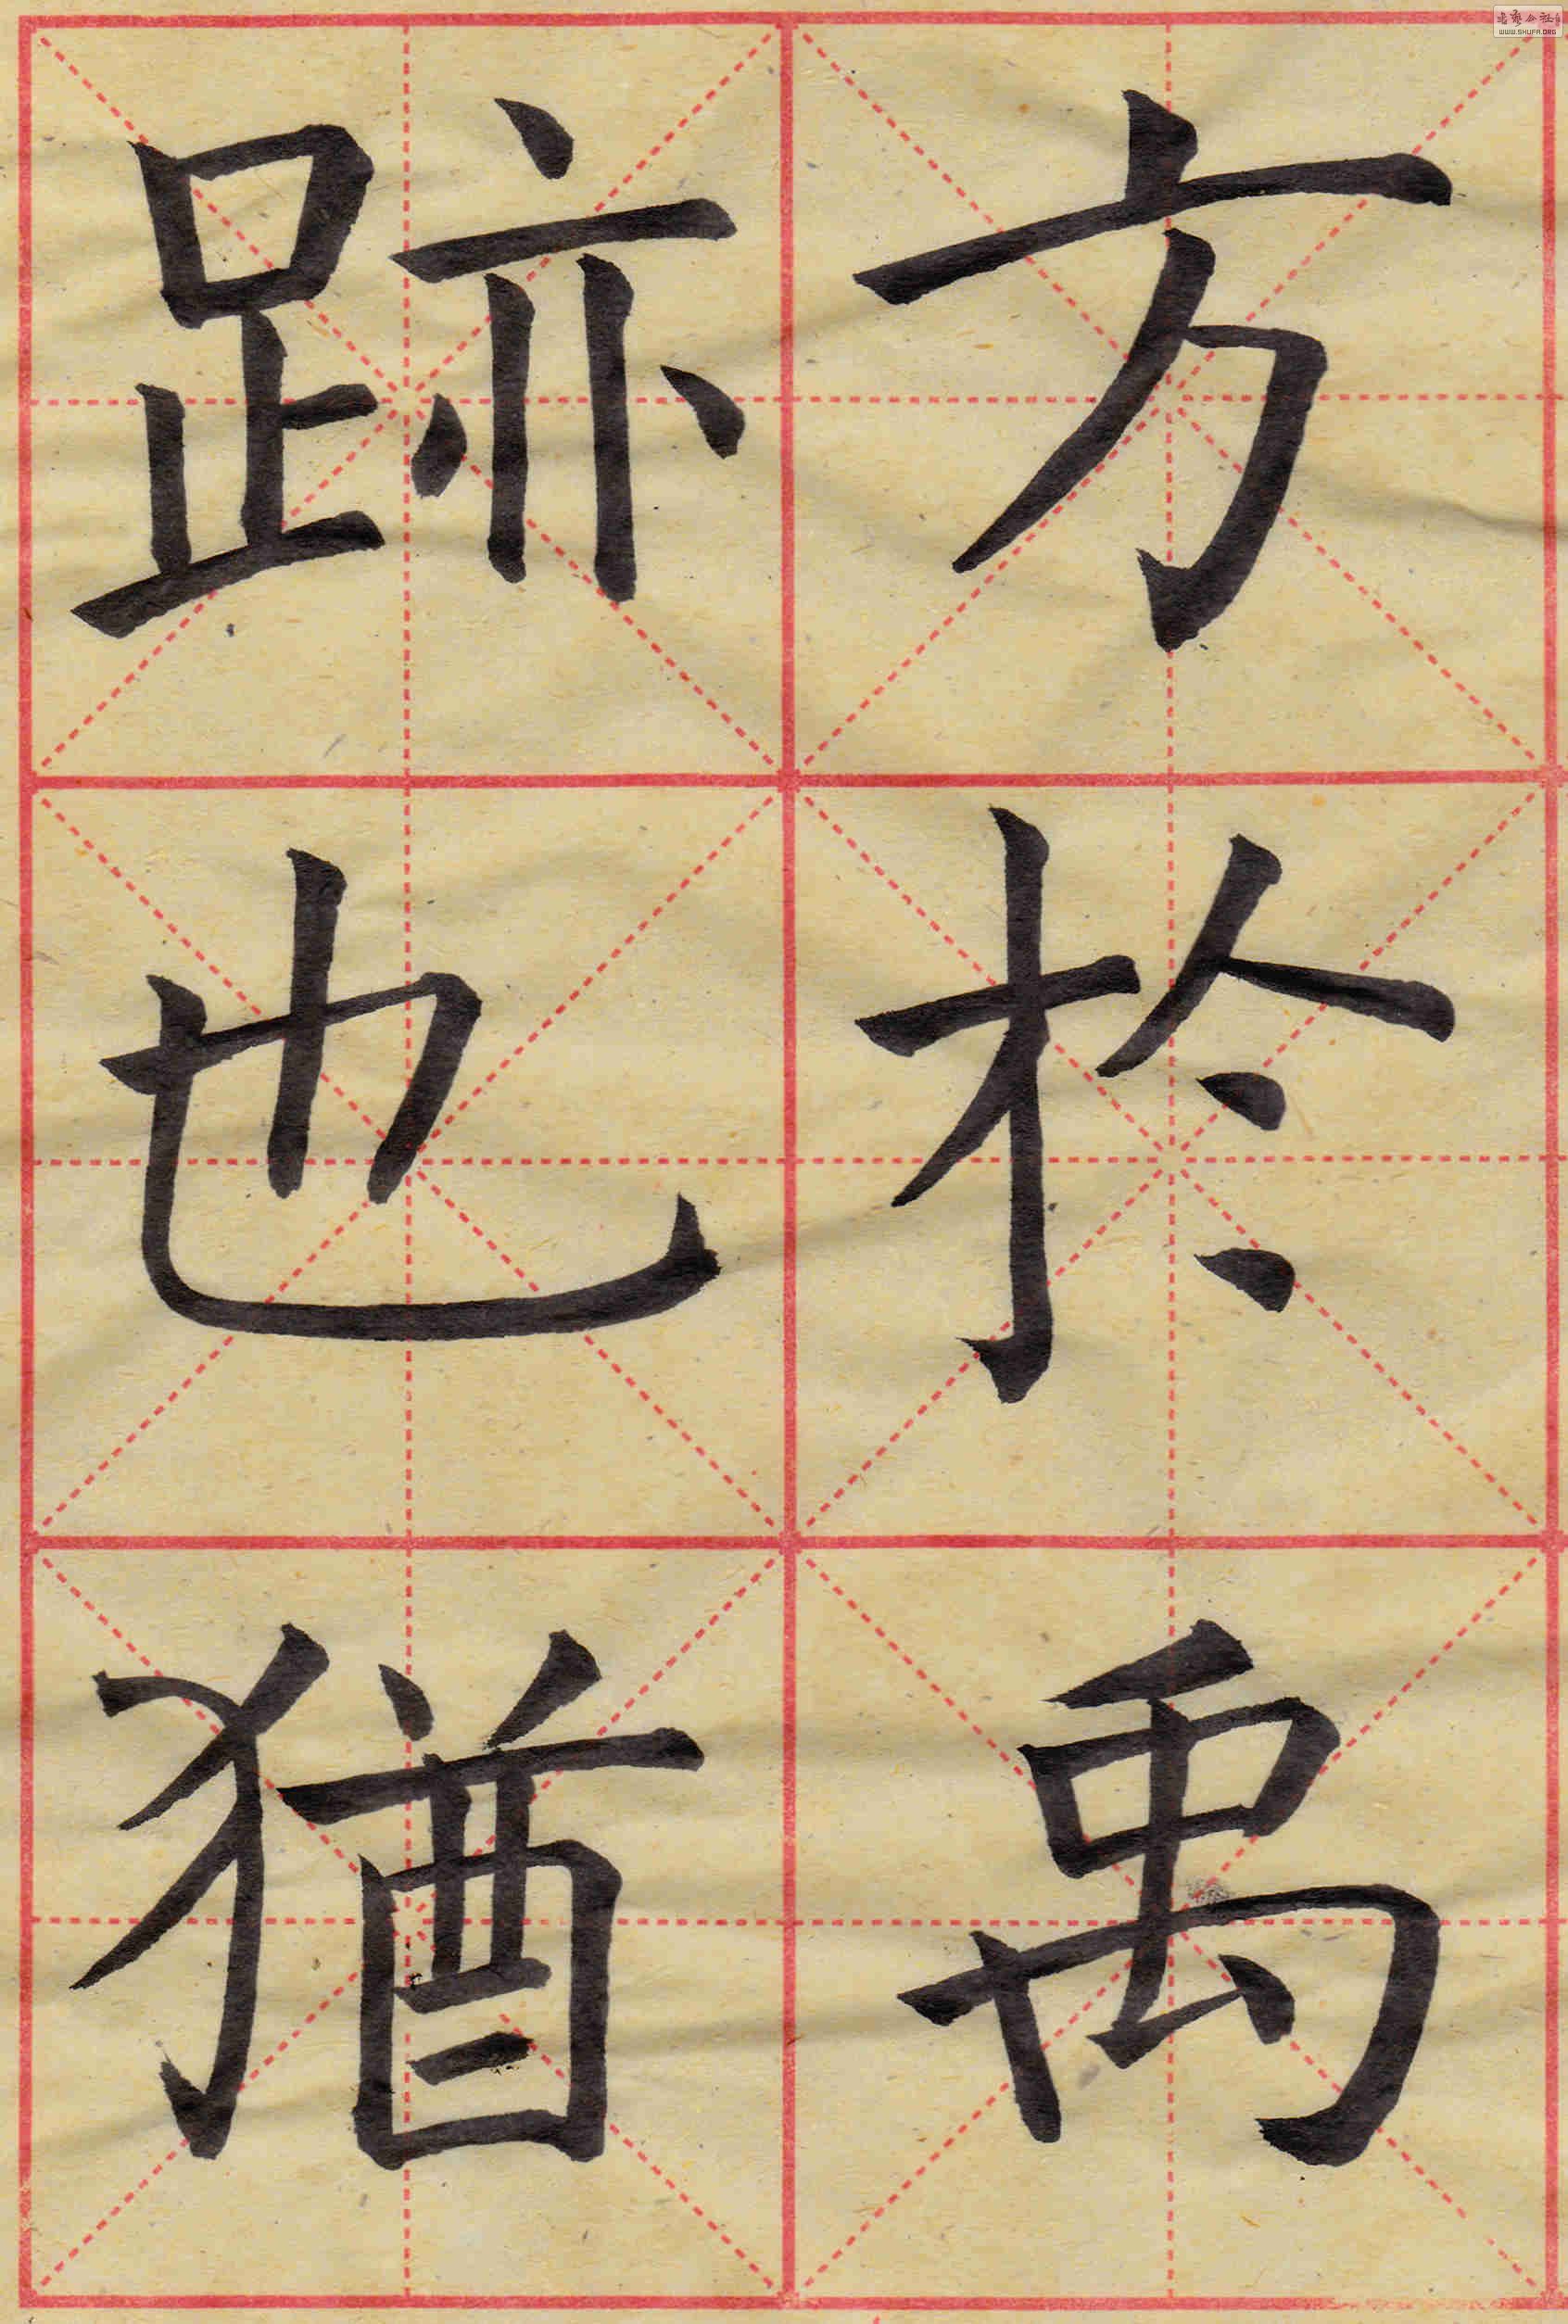 方於禹
跡也猶
WWW.SHUFA.ORG